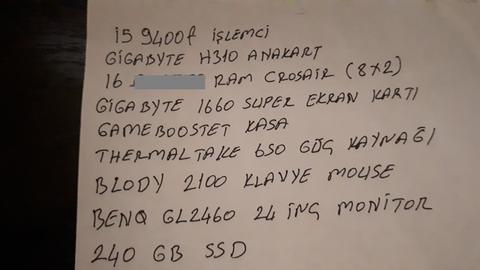 i5 9400f işlemci
GİGABYTE H310 ANAKART
16 RAM CROSAİR (8x2)
GİGABYTE 1660 SUPER EKRAN KARTI
GAMEBOOSTET KASA
THERMALTAKE 650 GÜÇ KAYNAĞI
BLODY 2100 KLAVYE MOUSE
BENQ GL2460 24 İNÇ MONİTOR
240 GB SSD